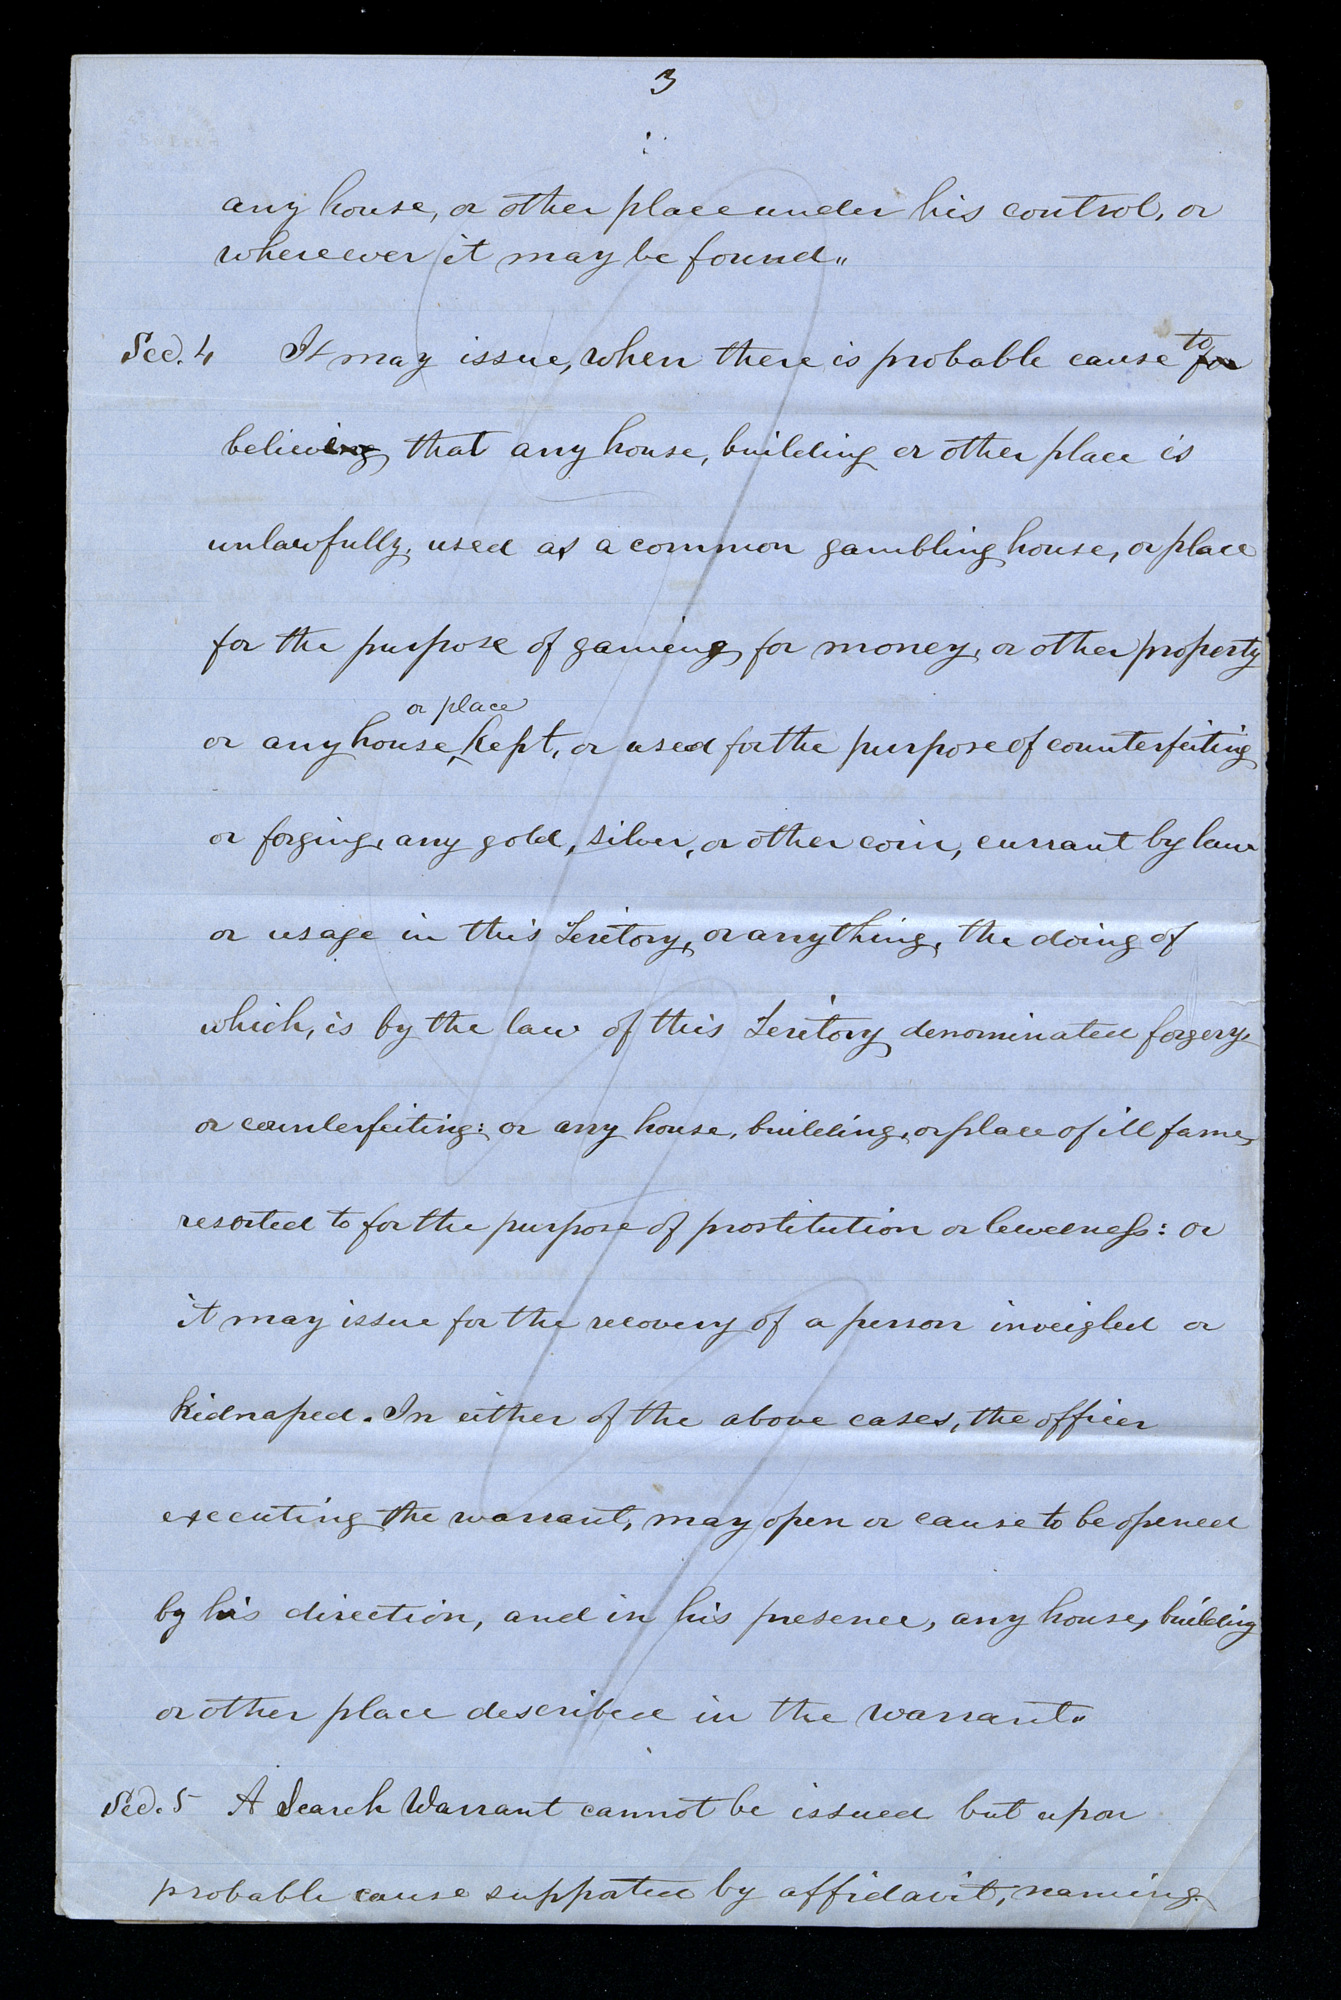 3
any house, or other place under his control, or
wherever it may be found"
Sec. 4 It may issue, when there is probable cause to for
believing that any house, building or other place is
unlawfully, used as a common gambling house, or place
for the purpose of gaming, for money, or other property
or place
or any house kept, or used for the purpose of counterfeiting
or forging, any gold, silver, or other coin, currant by law
or usage in this Teritory, or anything, the doing of
which, is by the law of this Teritory denominated forgery,
or counterfeiting: or any house, building, or place of ill fame,
resorted to for the purpose of prostitution or lewdness: or
it may issue for the recovery of a person inveigled or
kidnaped. In either of the above cases, the officer
executing the warrant, may open or cause to be opened
by his direction, and in his presence, any house, building
or other place described in the warrant"
Sec. 5 A Search Warrant cannot be issued but upon
probable cause supported by affidavit, naming